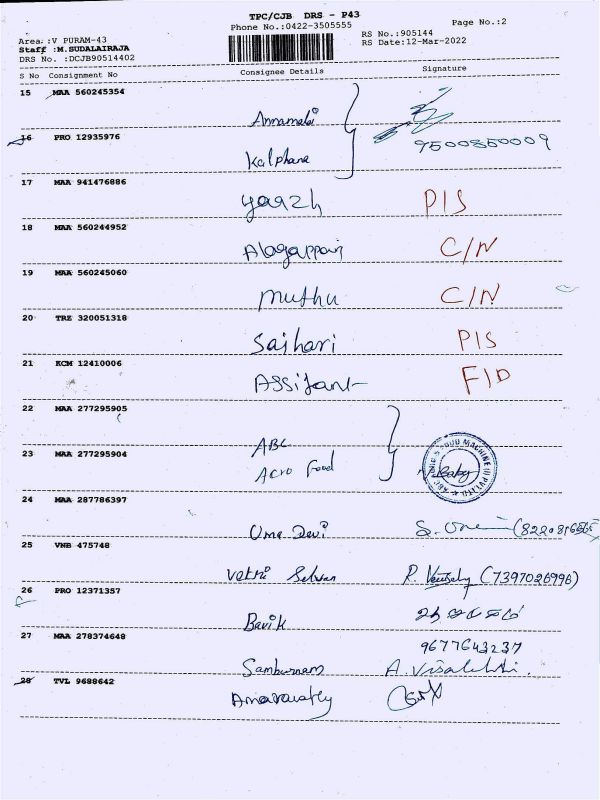 TPC/CJB DRS - P43
Phone No.:0422-3505555
Page No.:2
Area :V PURAM-43
RS No.:905144
Staff :M.SUDALAIRAJA
RS Date:12-Mar-2022
DRS No. :DCJB90514402
S No Consignment No Consignee Details Signature
15 MAA 560245354
Annamalai
16 PRO 12935976
9500850009
Kalphana
17 MAA 941476886
yaazh P/S
18 MAA 560244952
Alagappan C/N
19 MAA 560245060
Muthu C/N
20 TRZ 320051318
Saihari P/S
21 KCM 12410006
Assifant F/D
22 MAA 277295905
ABC
23 MAA 277295904
Acro Food
24 MAA 287786397
Uma Devi
25 VNB 475748
Vetri Selvan (7397026996)
26 PRO 12371357
Bavik
27 MAA 278374648
9677643237
Samburnam A. Visalakshi.
28 TVL 9688642